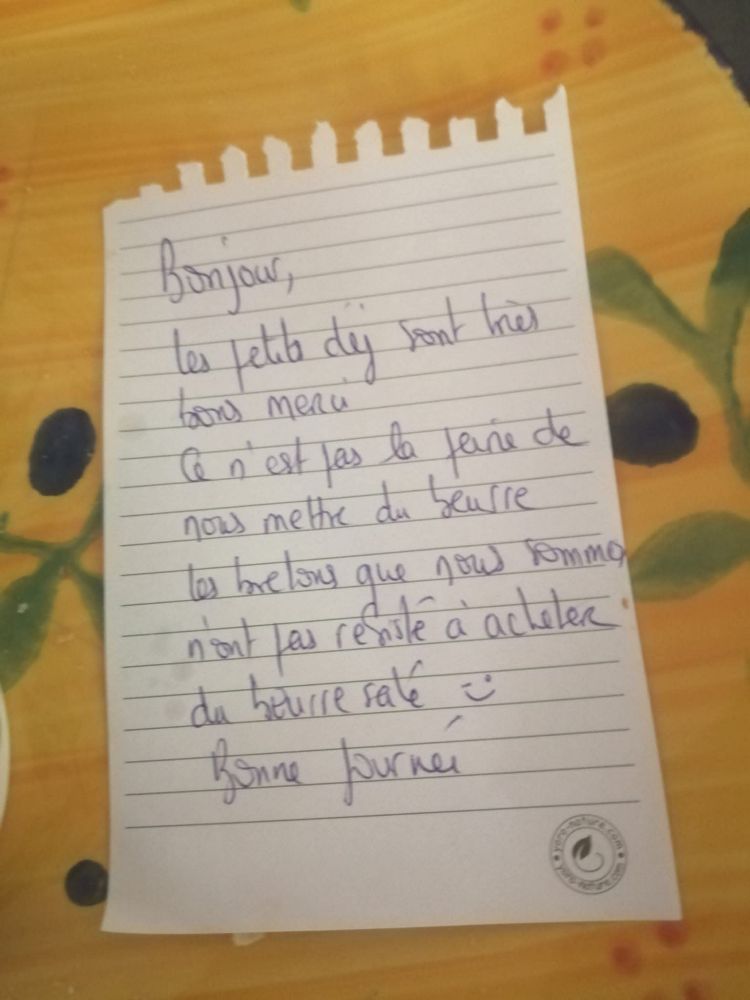 Bonjour,
les petits dej sont très
bons merci
Ce n'est pas la peine de
nous mettre du beurre
les bretons que nous sommes
n'ont pas résisté à acheter
du beurre salé :)
Bonne journée
yoro-nature.com
yoro-nature.com